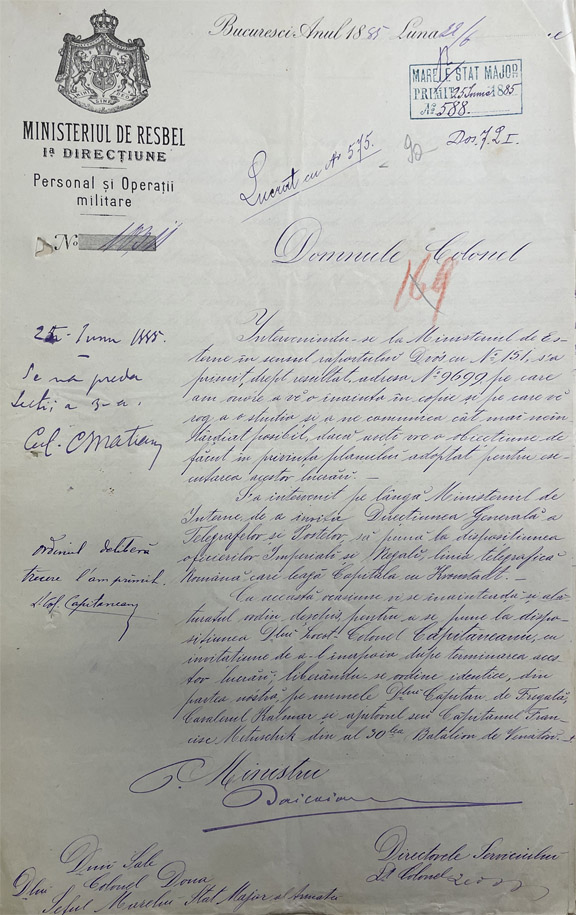 Bucuresci Anul 1885 Luna 22/6
MARELE STAT MAJOR
PRIMIT 25 Iunie 1885
No 588.
MINISTERIUL DE RESBEL
Iª DIRECȚIUNE
Personal și Operații
militare
No
Lucrat cu Nr 575.
Dos. 7.2 I.
Domnule Colonel
169
25 Iunie 1885.
Se va preda
Secți[ei] a 3-a.
Col.
Intervenindu-se la Ministerul de Es-
terne în sensul raportului Dvós. cu No 151, s'a
primit, drept resultat, adresa No 9699 pe care
am onóre a vĕ o inainta în copie și pe care vĕ
rog a o studia și a ne comunica cât mai neîn
târdiat posibil, dacă aveți vre-o obiecțiune de
făcut în privința planului adoptat pentru ese-
cutarea acestor lucrări. —
S'a intervenit pe lângă Ministerul de
Interne, de a invita Direcțiunea Generală a
Telegrafelor și Postelor, să pună la dispositiunea
oficerilor Imperiali și Regali, linia telegrafică
Română care leagă Capitala cu Kronstadt. —
Cu această ocasiune vi se înaintează și ală-
turatul ordin deschis, pentru a se pune la dispo-
sițiunea Dlui Locot. Colonel Căpităneanu, cu
invitațiune de a-l înapoia după terminarea aces
tor lucrări; liberându-se ordine identice, din
partea nostră, pe numele Dlui Capitan de Fregată,
Cavalerul Kalmar și ajutorul seŭ Căpitanul Fran-
cisc din al 30lea Batalion de Vênători. —
ordinul
trecere l'am primit.
Lt Col. Capitaneanu
p. Ministru
Directorele Serviciului
Lt Colonel
Dniei Sale
Dlui Colonel Dona
Șeful Marelui Stat Major al Armatei